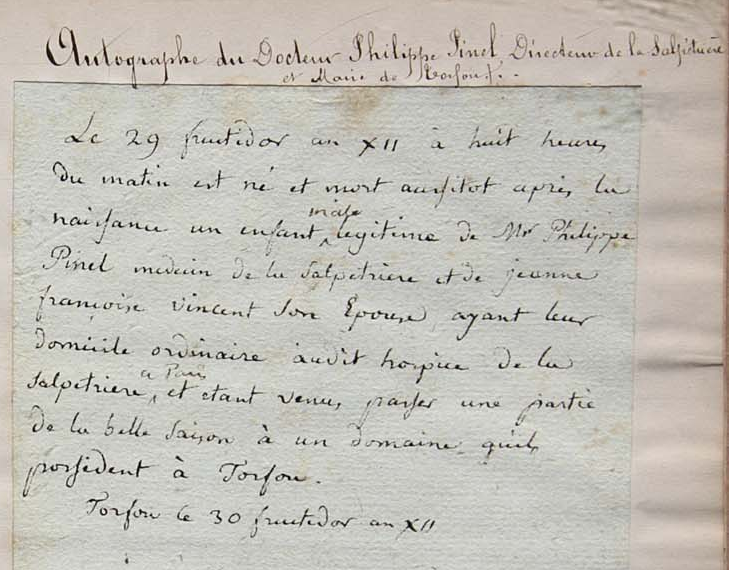 Autographe du Docteur Philippe Pinel Directeur de la Salpêtrière
et Maire de Torfou.
Le 29 fructidor an XII à huit heures
Du matin est né et mort aussitot après la
naissance un enfant mâle legitime de Mr Philippe
Pinel medecin de la salpetriere et de jeanne
françoise vincent son Epouse, ayant leur
domicile ordinaire audit hospice de la
salpetriere a Paris, et etant venus passer une partie
de la belle saison à un domaine quils
possèdent à Torfou.
Torfou le 30 fructidor an XII